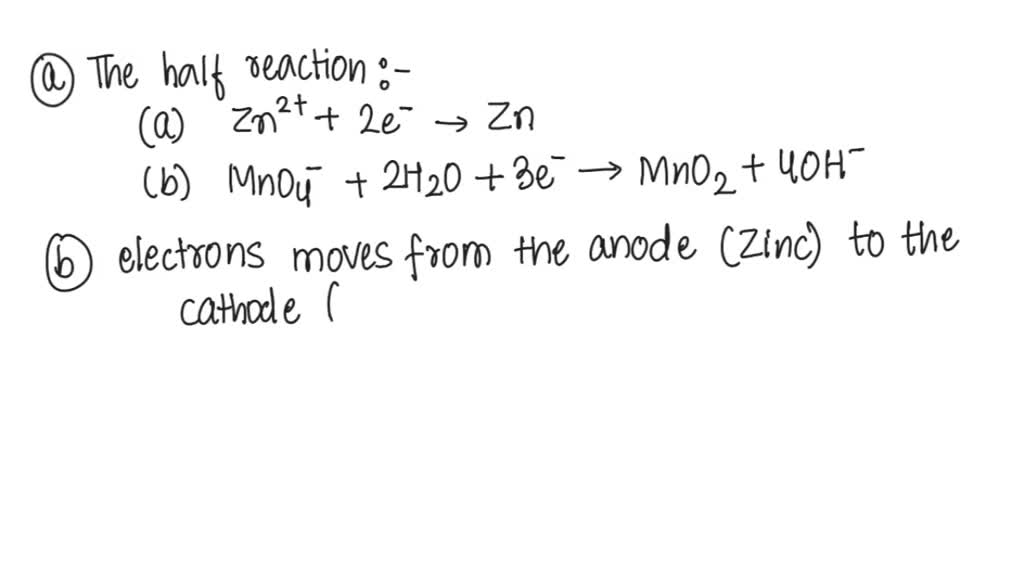 ⓐ The half reaction :-
(a) Zn²⁺ + 2e⁻ → Zn
(b) MnO₄⁻ + 2H₂O + 3e⁻ → MnO₂ + 4OH⁻
ⓑ electrons moves from the anode (Zinc) to the
cathode (